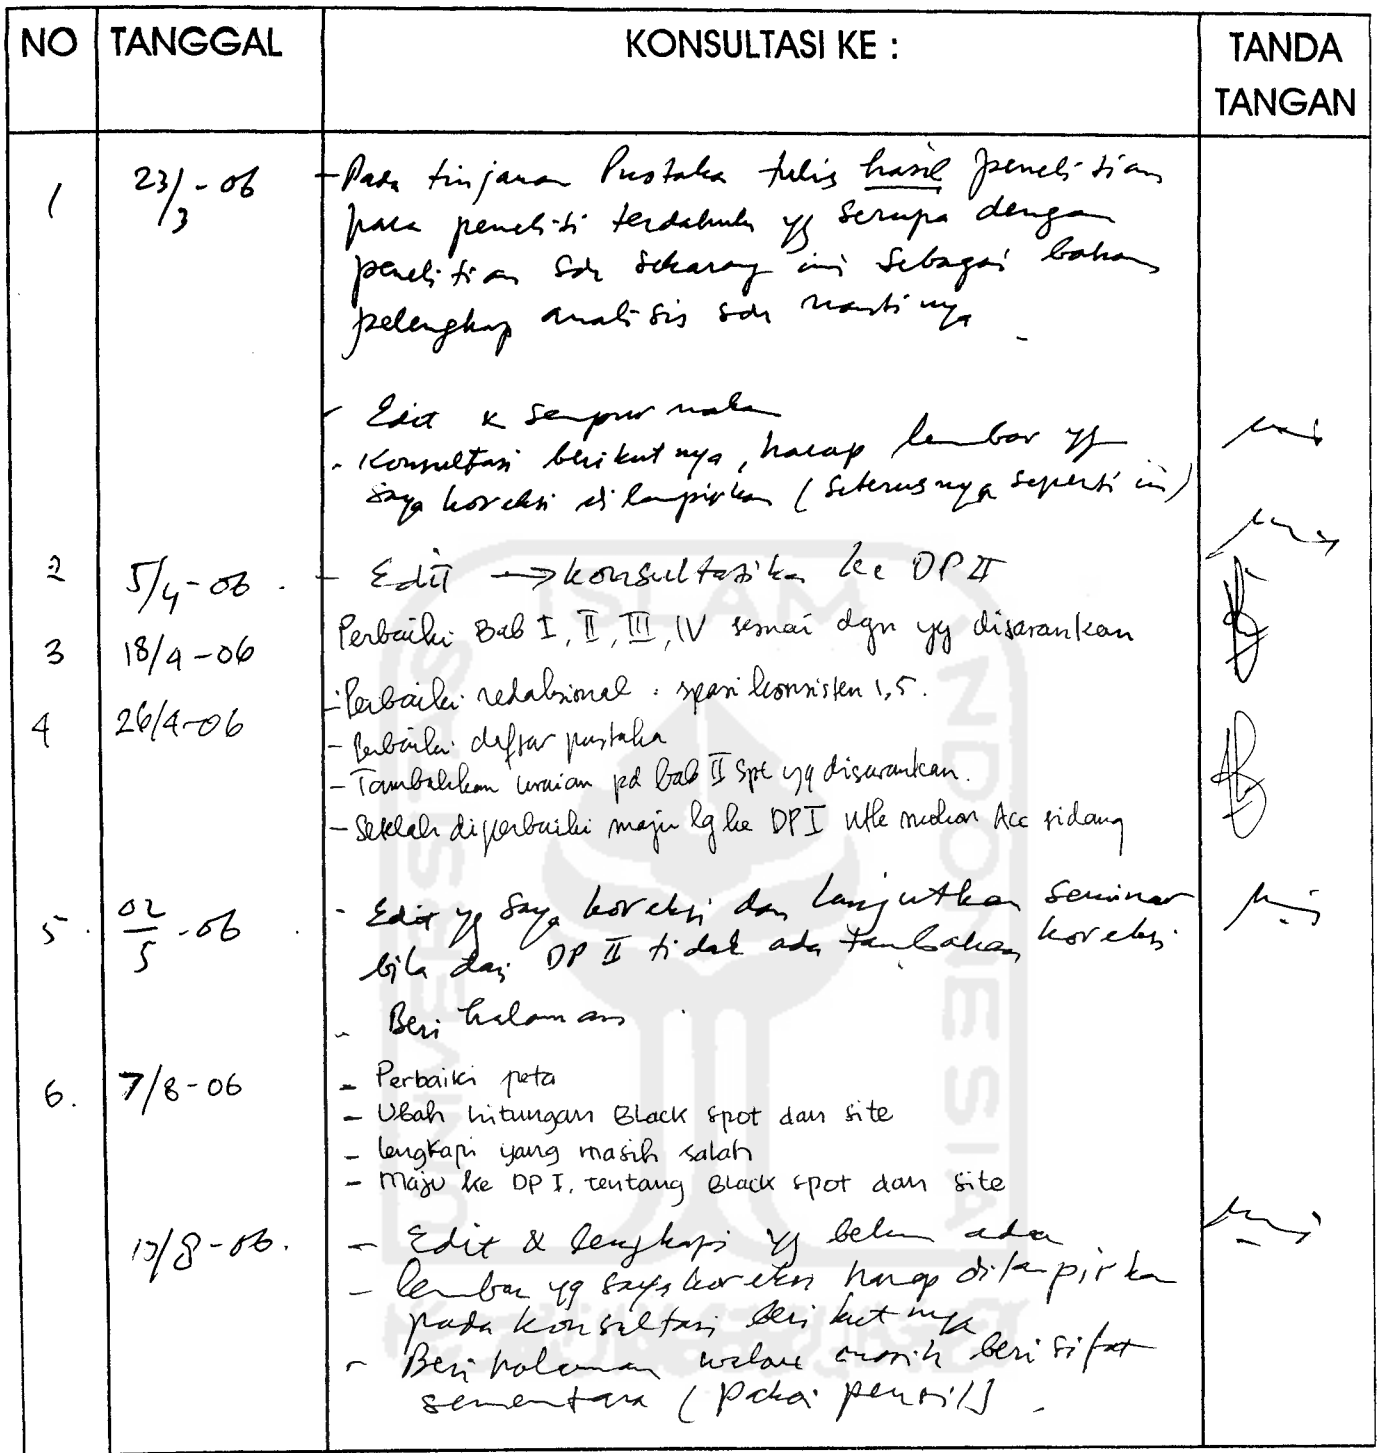 NO TANGGAL KONSULTASI KE : TANDA TANGAN
1 23/3-06 - Pada tinjauan Pustaka tulis hasil penelitian
para peneliti terdahulu yg serupa dengan
penelitian sdr sekarang ini sebagai bahan
pelengkap analisis sdr nantinya
- Edit & sempurnakan
- Konsultasi berikutnya, harap lembar yg
saya koreksi dilampirkan (seterusnya seperti ini)
2 5/4-06 - Edit → konsultasikan ke DP II
3 18/4-06 Perbaiki Bab I, II, III, IV sesuai dgn yg disarankan
4 26/4-06 - Perbaiki redaksional : spasi konsisten 1,5.
- Perbaiki daftar pustaka
- Tambahkan uraian pd bab II spt yg disarankan.
- Setelah diperbaiki maju lg ke DP I utk mohon Acc sidang
5. 02/5-06 - Edit yg saya koreksi dan lanjutkan seminar
bila dari DP II tidak ada tambahan koreksi
- Beri halaman
6. 7/8-06 - Perbaiki peta
- Ubah hitungan Black spot dan site
- lengkapi yang masih salah
- Maju ke DP I, tentang Black spot dan site
/8-06. - Edit & lengkapi yg belum ada
- lembar yg saya koreksi harap dilampirkan
pada konsultasi berikutnya
- Beri halaman walau masih bersifat
sementara (pakai pensil)
UNIVERSITAS ISLAM INDONESIA